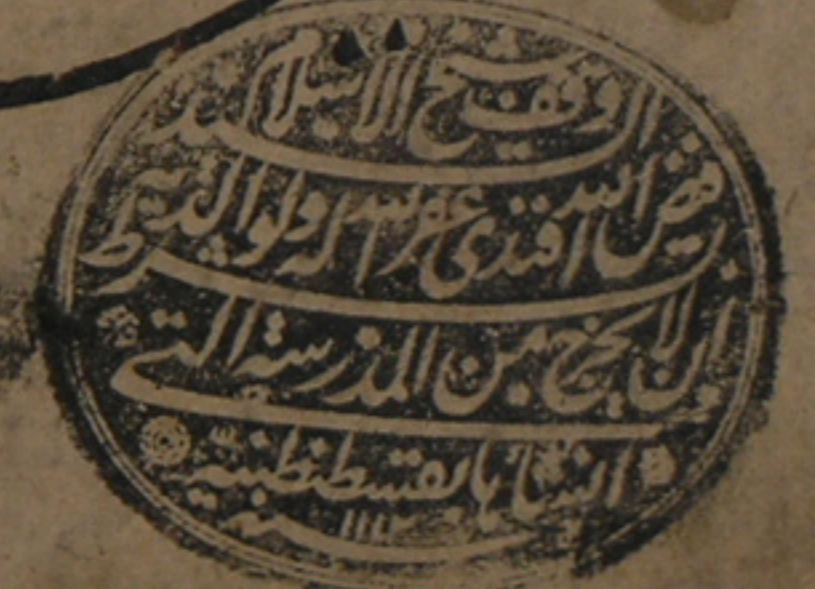 وقف شيخ الاسلام السيد
فيض الله افندى غفر الله له ولوالديه بشرط
ان لا يخرج من المدرسة التي
انشأها بقسطنطينية
سنه ١١١٢